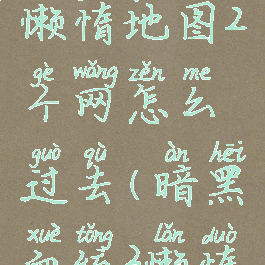 懒惰地图2
gè wǎng zěn me
个网怎么
guò qù àn hēi
过去(暗黑
xuè tǒng lǎn duò